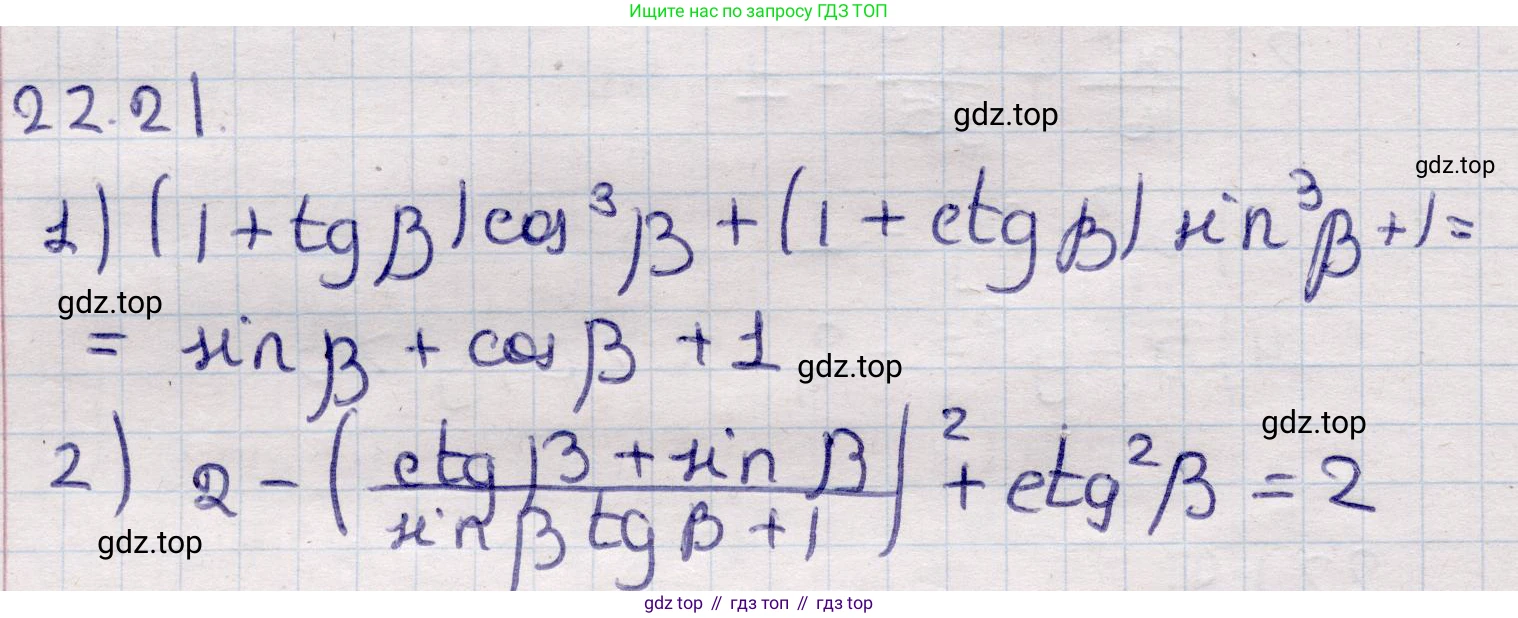 Ищите нас по запросу ГДЗ ТОП
22.21.
gdz.top
gdz.top
1) (1 + tg β) cos³ β + (1 + ctg β) sin³ β + 1 =
gdz.top
= sin β + cos β + 1
gdz.top
2) 2 - ( (ctg β + sin β) / (sin β tg β + 1) )² + ctg² β = 2
gdz.top
gdz.top
gdz top // гдз топ // гдз top